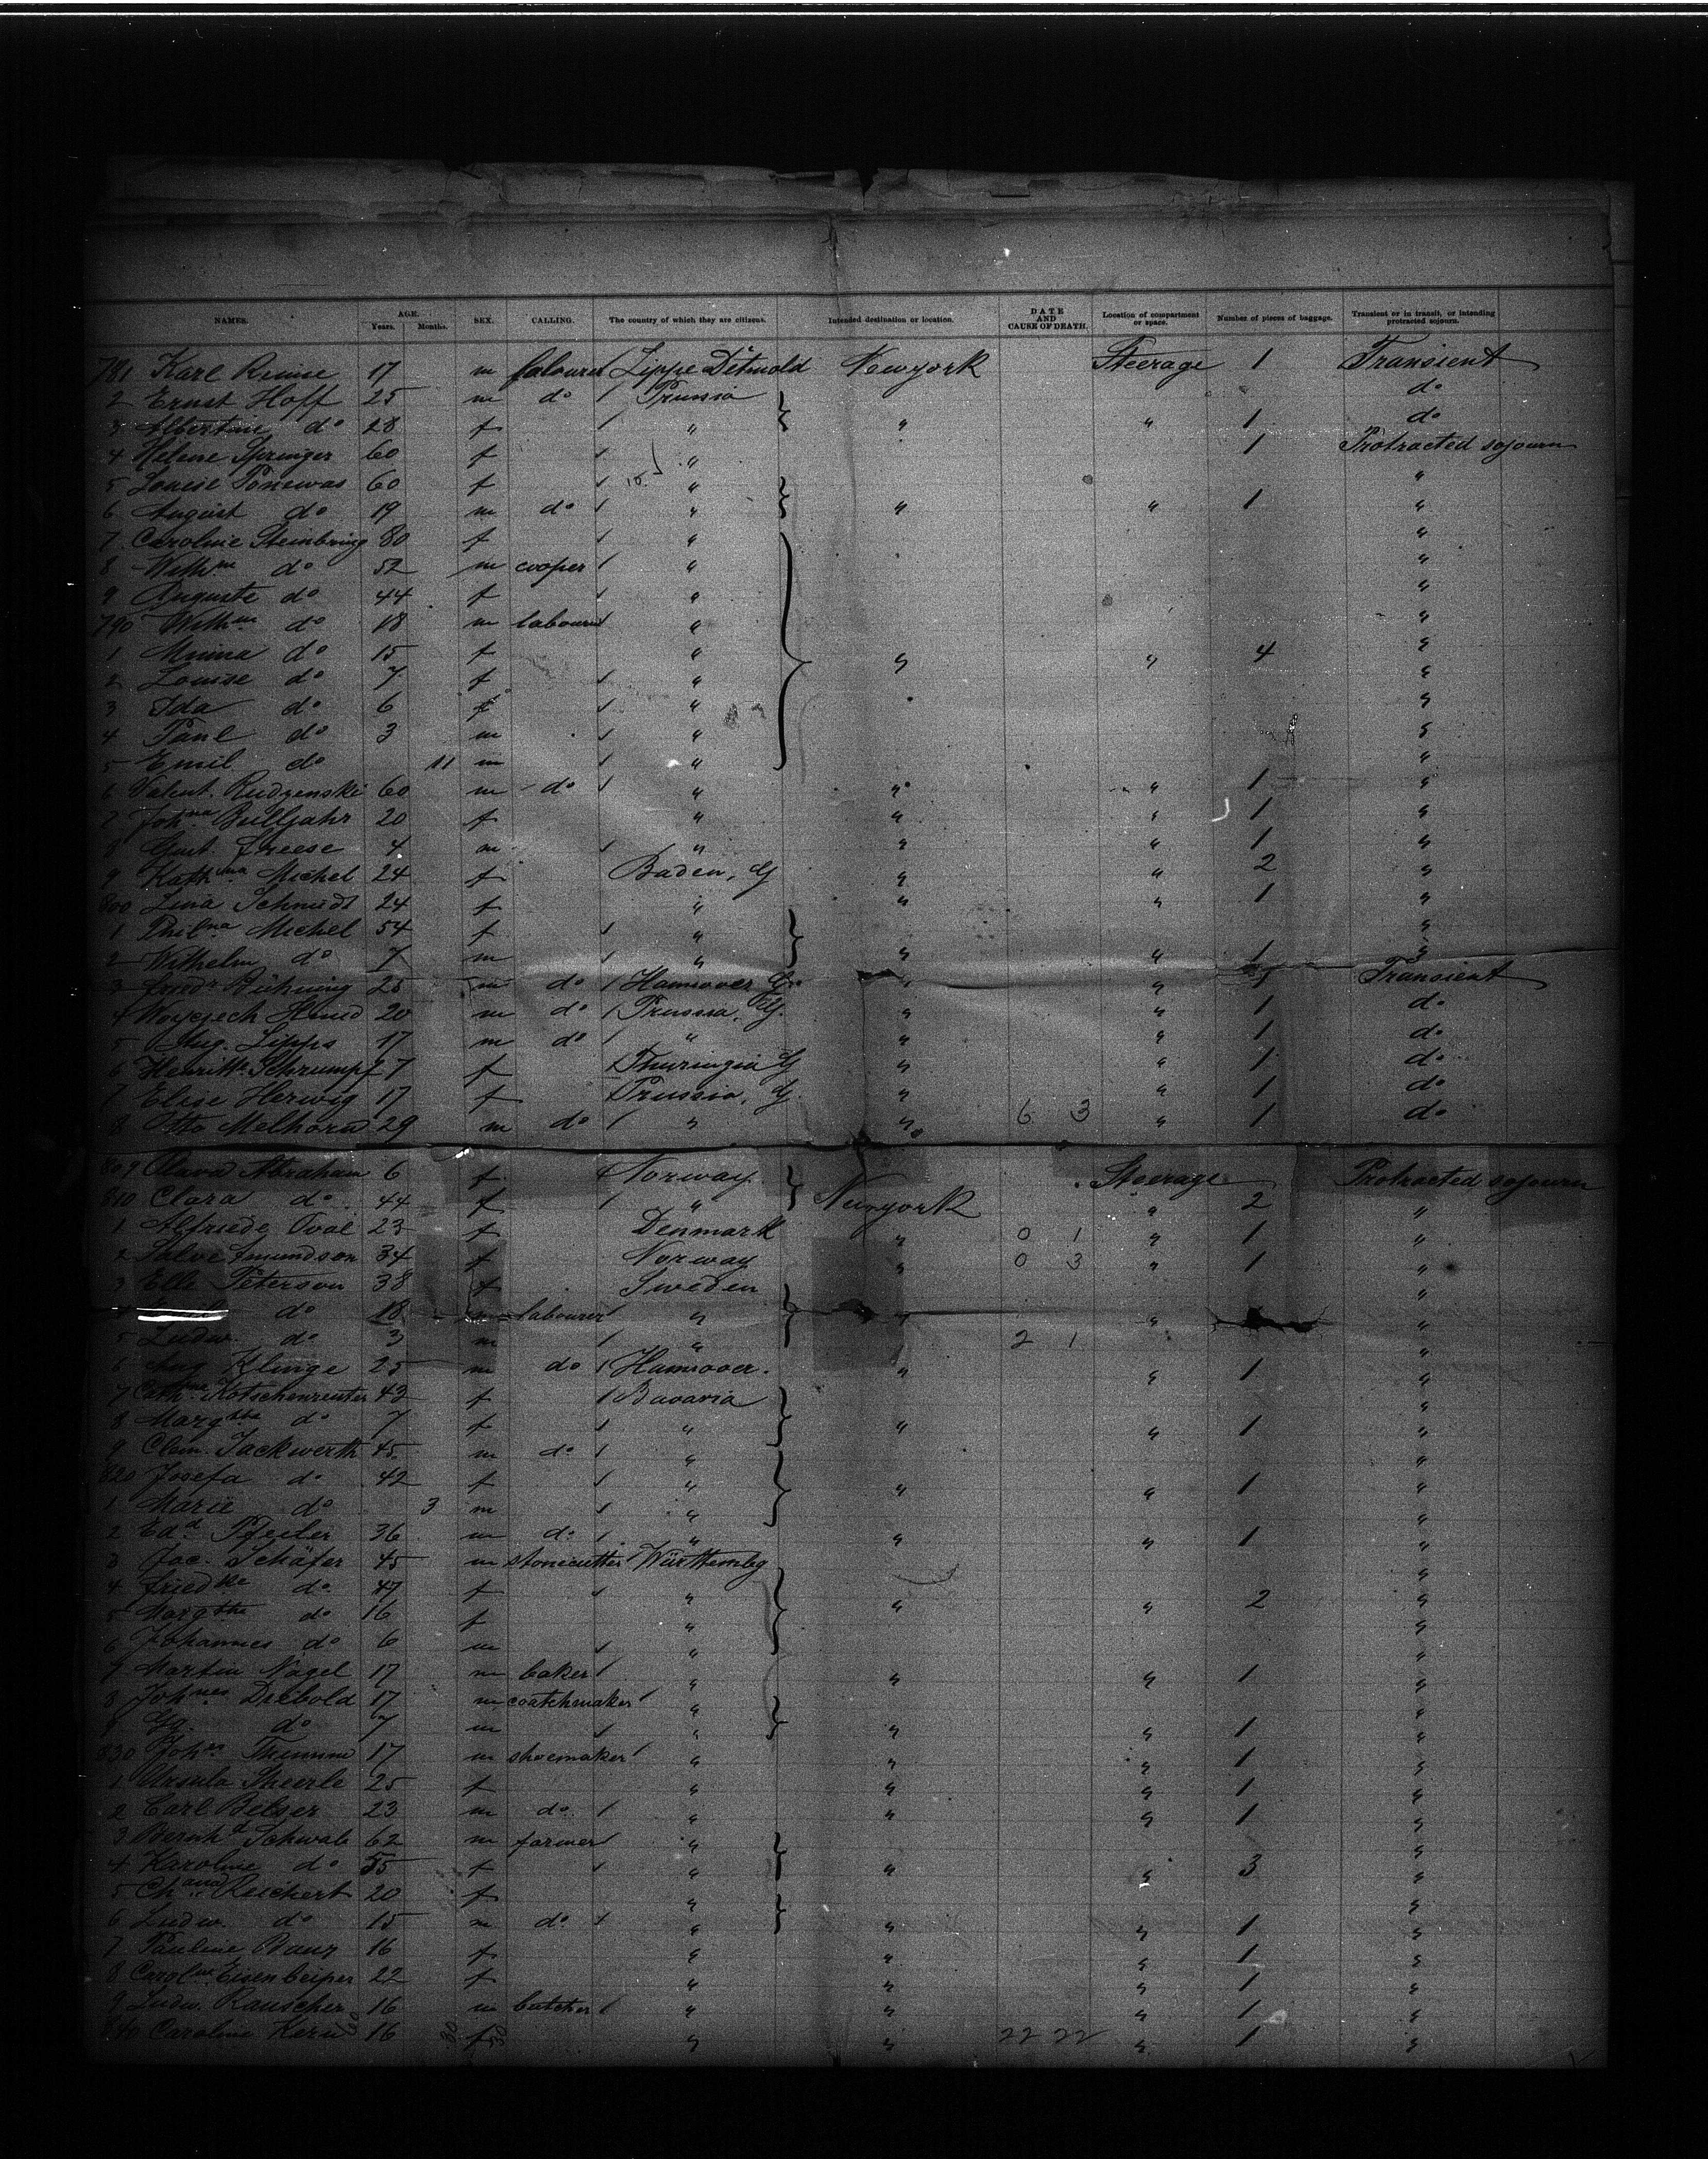 NAMES. AGE. Years. Months. SEX. CALLING. The country of which they are citizens. Intended destination or location. DATE AND CAUSE OF DEATH. Location of compartment or space. Number of pieces of baggage. Transient or in transit, or intending protracted sojourn.
781 Karl 17 m Lippe Detmold Newyork Steerage 1 Transient
2 Ernst Hoff 25 m do / Prussia do
3 Albertine do 28 f / " " " 1 do
4 Helene Springer 60 f / " 1 Protracted sojourn
5 Louise Ponewas 60 f / " "
6 August do 19 m do / " " " 1 "
7 Caroline Steinbring 80 f / " "
8 Wilhm do 52 m cooper / " "
9 Auguste do 44 f / " "
790 Wilhm do 18 m labourer " "
1 Minna do 15 f " " " 4 "
2 Louise do 7 f / " "
3 Ida do 6 f / " "
4 Paul do 3 m / " "
5 Emil do 11 m / " "
6 Valent. Rudzenski 60 m do / " " " 1 "
7 Johna Bulljahr 20 f " " " 1 "
8 Gust. Freese 4 m / " " " 1 "
9 Kathina Michel 24 f Baden, G " " 2 "
800 Lina Schmidt 24 f " " " 1 "
1 Philna Michel 54 f / " "
2 Wilhelm do 7 m / " " " 1 "
3 Friedr Bühring 25 m do / Hannover G " " 1 Transient
4 Woycjech 20 m do / Prussia, G. " " 1 do
5 Aug. Lipps 17 m do / " " " 1 do
6 Henritte Schrumpf f Thuringia G " " 1 do
7 Elise Herwig 17 f Prussia, G. " " 1 do
8 Otto Melhorn 29 m do / " " 6 3 " 1 do
809 Abraham 6 f Norway Steerage Protracted sojourn
810 Clara do 44 f / " Newyork " 2 "
1 Alfriede Oval 23 f Denmark " 0 1 " 1 "
2 34 f Norway " 0 3 " 1 "
3 Elle Peterson 38 f Sweden "
do 18 m labourer / " " "
5 Ludw. do 3 m / " 2 1 "
6 Aug Klinge 25 m do / Hannover. " " 1 "
7 Cathna Kotschenreuter 43 f / Bavaria "
8 Margthe do 7 f / " " " 1 "
9 Clem. Tackwerth 45 m do / " "
820 Josefa do 42 f / " " " 1 "
1 Marie do 3 m / " "
2 Edd Pfeiler 36 m do / " " " 1 "
3 Jac. Schäfer 45 m stonecutter Württembg "
4 Friedke do 47 f / " " " 2 "
5 Margthe do 16 f " "
6 Johannes do 6 m / " "
7 Martin Nagel 17 m baker / " " " 1 "
8 Johnes Diebold 17 m coatchmaker / " "
9 Gg. do 7 m / " " " 1 "
830 Johes Thumm 17 m shoemaker / " " " 1 "
1 Ursula Sheerle 25 f " " " 1 "
2 Carl Belser 23 m do / " " " 1 "
3 Bernhd Schwab 62 m farmer / " "
4 Karoline do 55 f / " " " 3 "
5 Chana Reichert 20 f " "
6 Ludw. do 15 m do / " " " 1 "
7 Pauline Banz 16 f " " " 1 "
8 22 f " " " 1 "
9 Ludw. Rauscher 16 m butcher / " " " 1 "
840 Caroline Kern 16 30 f 30 " " 22 22 " 1 "